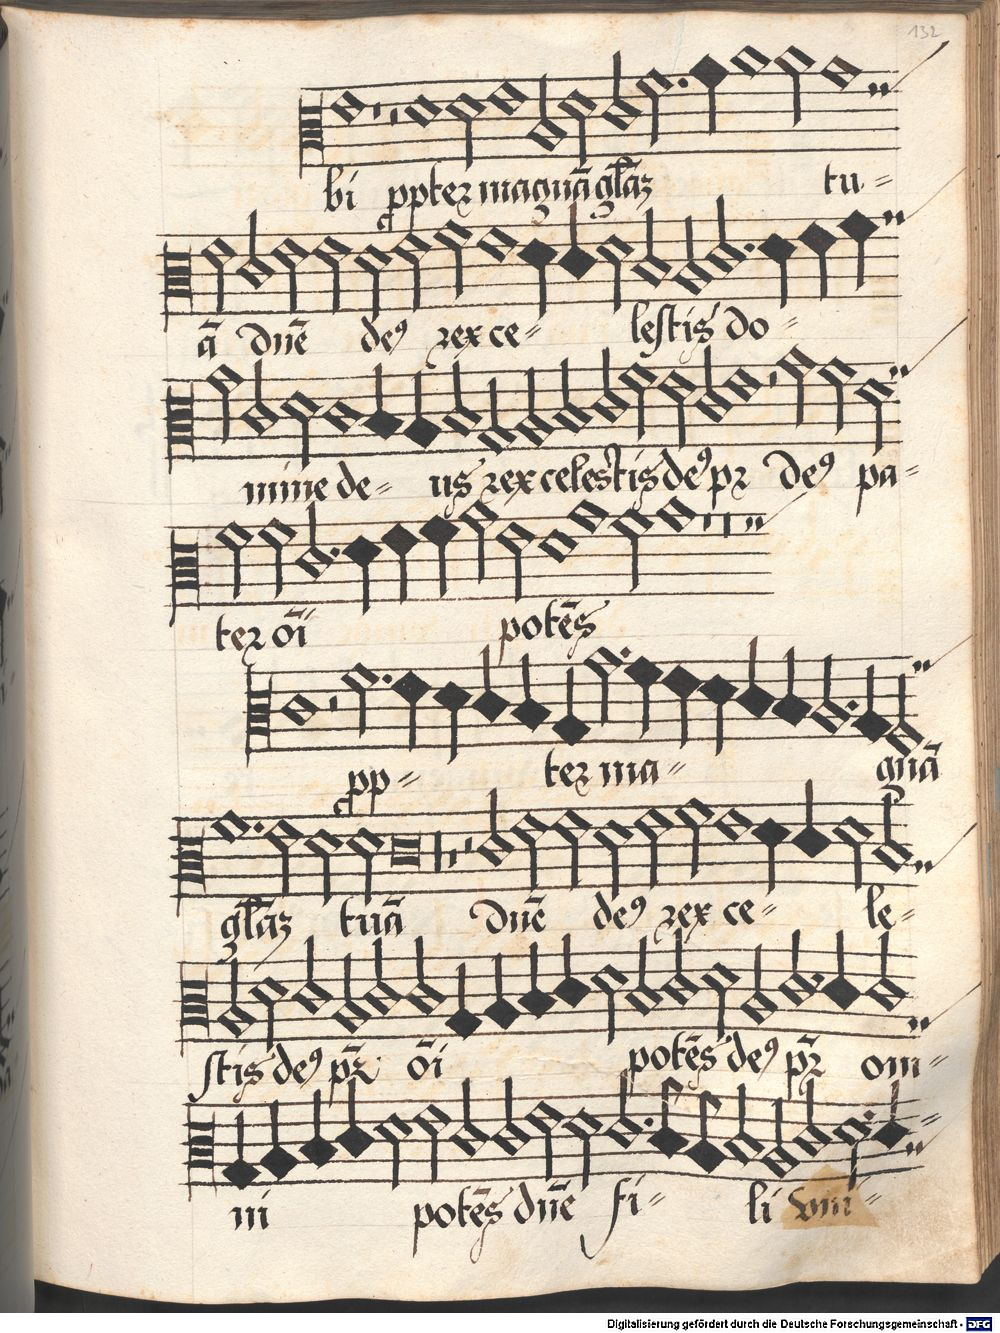 132
bi ꝓpter magnā gl̄aꝫ tu-
ā dn̄e deꝰ rex ce- lestis do-
mine de- us rex celestis deꝰ pr̄ deꝰ pa-
ter oī potēs
ꝓp- ter ma- gnā
gl̄aꝫ tuā dn̄e deꝰ rex ce- le-
stis deꝰ pr̄ oī potēs deꝰ pr̄ om-
ni potēs dn̄e fi- li vni-
Digitalisierung gefördert durch die Deutsche Forschungsgemeinschaft - DFG